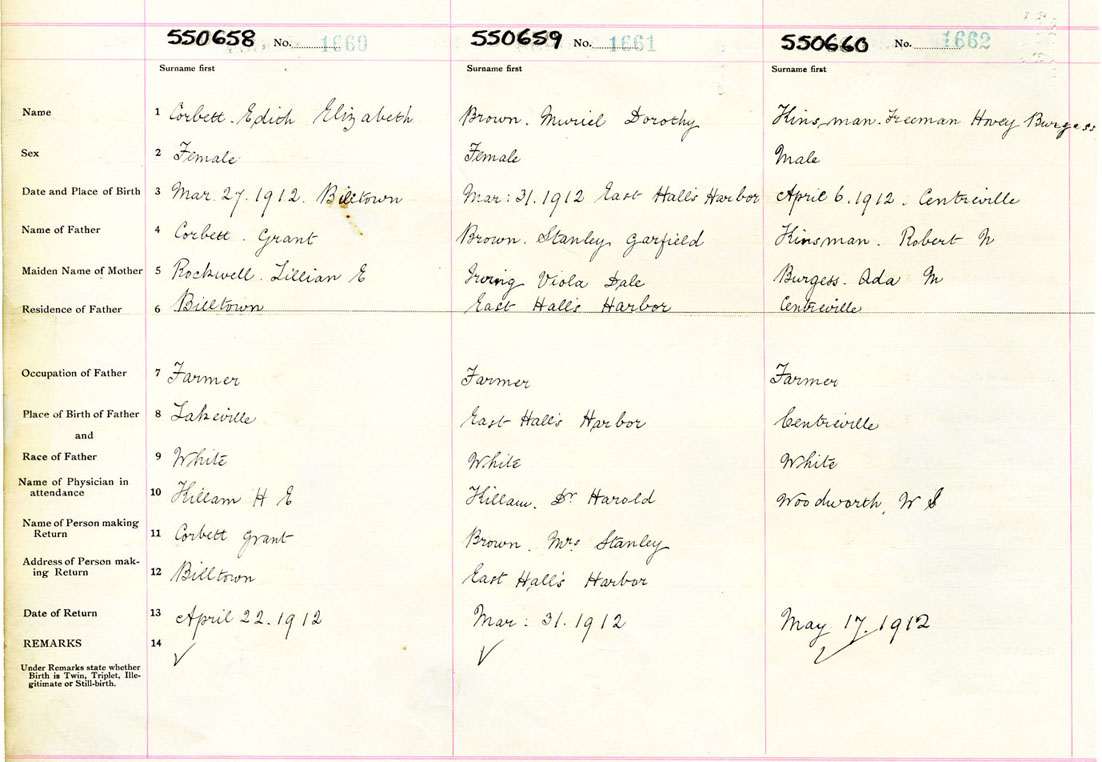 550658 No. 1660 550659 No. 1661 550660 No. 1662
Surname first Surname first Surname first
Name 1 Corbett. Edith Elizabeth Brown. Muriel Dorothy Kinsman. Freeman Hovey Burgess
Sex 2 Female Female Male
Date and Place of Birth 3 Mar. 27. 1912. Billtown Mar: 31. 1912 East Hall's Harbor April 6. 1912. Centreville
Name of Father 4 Corbett. Grant Brown. Stanley Garfield Kinsman. Robert N
Maiden Name of Mother 5 Rockwell. Lillian E Irving Viola Dale Burgess. Ada M
Residence of Father 6 Billtown East Hall's Harbor Centreville
Occupation of Father 7 Farmer Farmer Farmer
Place of Birth of Father 8 Lakeville East Hall's Harbor Centreville
and
Race of Father 9 White White White
Name of Physician in
attendance 10 Killam H E Killam. Dr Harold Woodworth, W S
Name of Person making
Return 11 Corbett Grant Brown. Mrs Stanley
Address of Person mak-
ing Return 12 Billtown East Hall's Harbor
Date of Return 13 April 22. 1912 Mar: 31. 1912 May 17. 1912
REMARKS 14 ✓ ✓ ✓
Under Remarks state whether
Birth is Twin, Triplet, Ille-
gitimate or Still-birth.